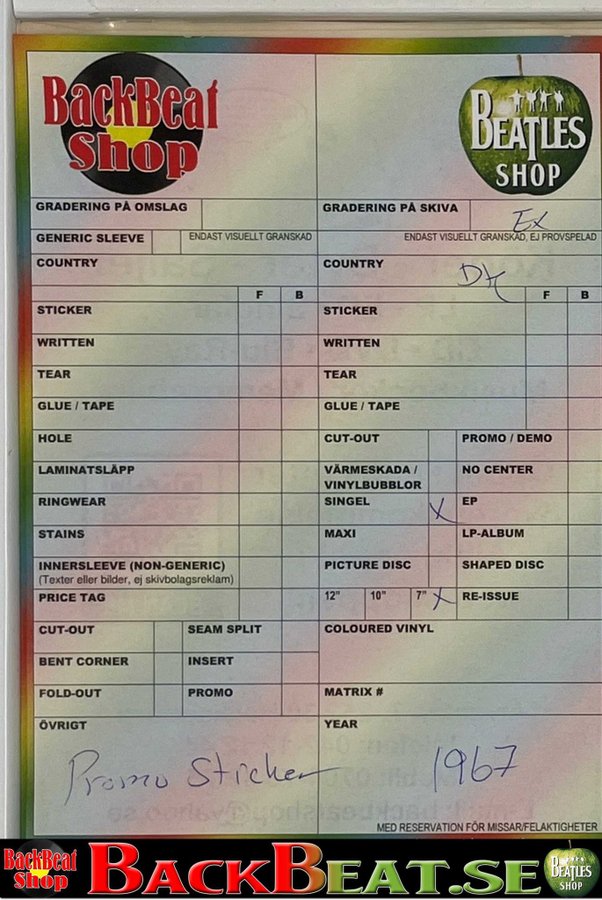 BackBeat
Shop
BEATLES
SHOP
GRADERING PÅ OMSLAG
GENERIC SLEEVE
ENDAST VISUELLT GRANSKAD
COUNTRY
F B
STICKER
WRITTEN
TEAR
GLUE / TAPE
HOLE
LAMINATSLÄPP
RINGWEAR
STAINS
INNERSLEEVE (NON-GENERIC)
(Texter eller bilder, ej skivbolagsreklam)
PRICE TAG
CUT-OUT SEAM SPLIT
BENT CORNER INSERT
FOLD-OUT PROMO
ÖVRIGT
Promo Sticker
GRADERING PÅ SKIVA Ex
ENDAST VISUELLT GRANSKAD, EJ PROVSPELAD
COUNTRY DK
F B
STICKER
WRITTEN
TEAR
GLUE / TAPE
CUT-OUT PROMO / DEMO
VÄRMESKADA / NO CENTER
VINYLBUBBLOR
SINGEL X EP
MAXI LP-ALBUM
PICTURE DISC SHAPED DISC
12" 10" 7" X RE-ISSUE
COLOURED VINYL
MATRIX #
YEAR
1967
MED RESERVATION FÖR MISSAR/FELAKTIGHETER
BackBeat
Shop
BACKBEAT.SE
BEATLES
SHOP